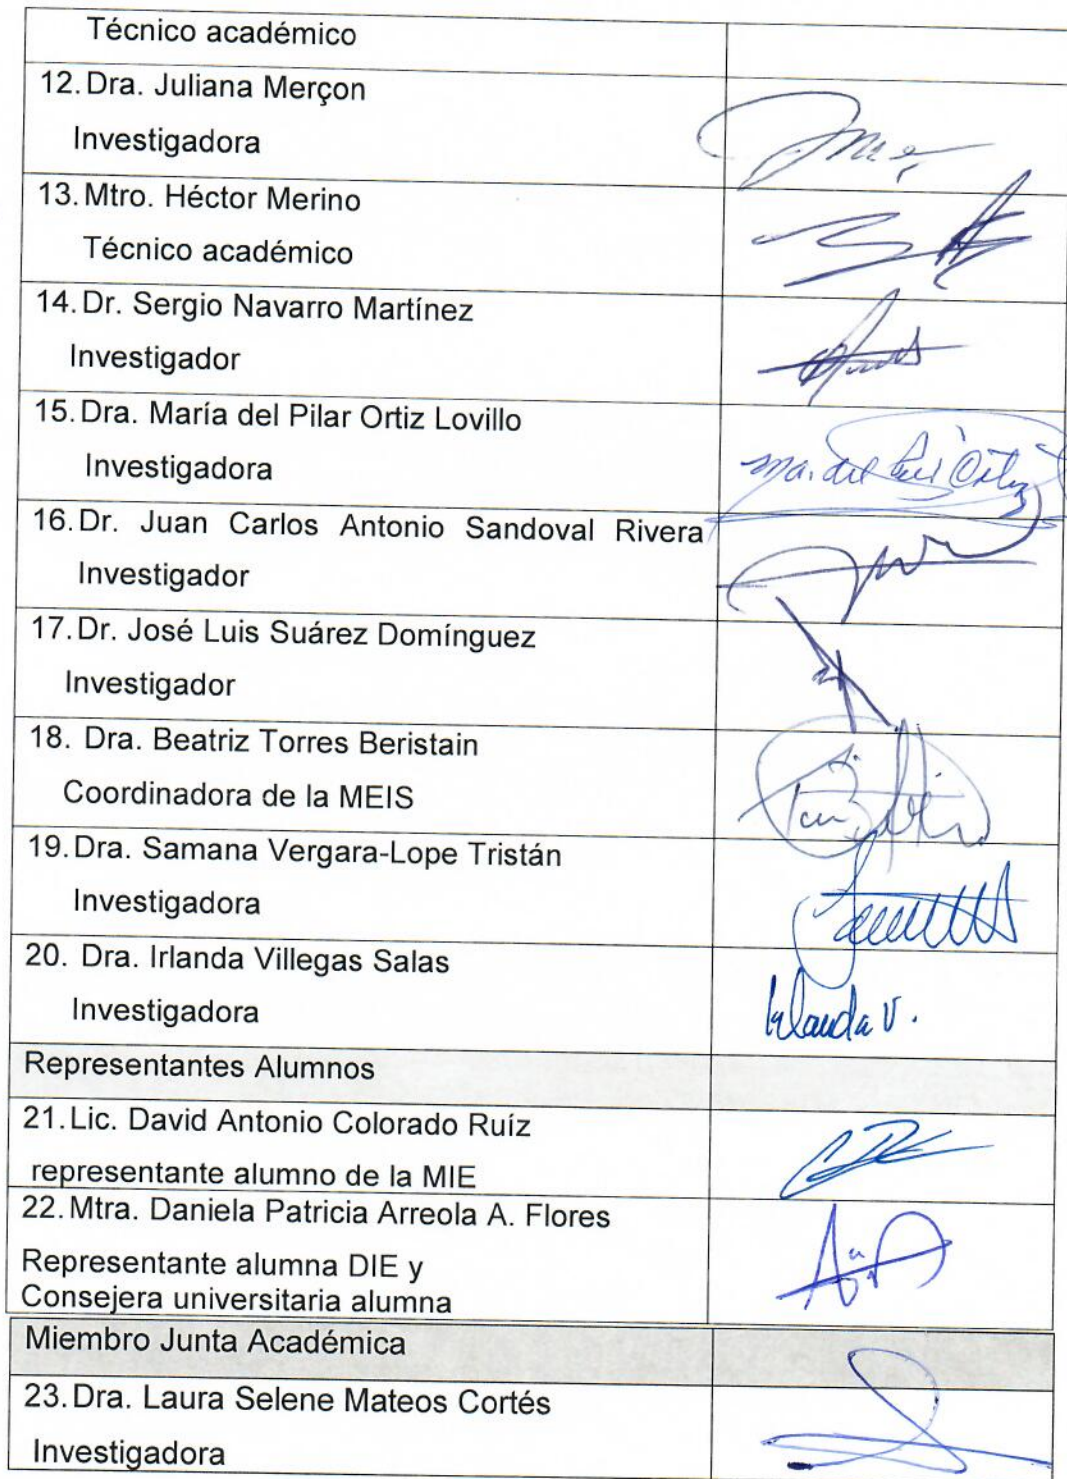 Técnico académico
12. Dra. Juliana Merçon
Investigadora
13. Mtro. Héctor Merino
Técnico académico
14. Dr. Sergio Navarro Martínez
Investigador
15. Dra. María del Pilar Ortiz Lovillo
Investigadora
Ma. del Pilar Ortiz
16. Dr. Juan Carlos Antonio Sandoval Rivera
Investigador
17. Dr. José Luis Suárez Domínguez
Investigador
18. Dra. Beatriz Torres Beristain
Coordinadora de la MEIS
19. Dra. Samana Vergara-Lope Tristán
Investigadora
20. Dra. Irlanda Villegas Salas
Investigadora
Irlanda V.
Representantes Alumnos
21. Lic. David Antonio Colorado Ruíz
representante alumno de la MIE
22. Mtra. Daniela Patricia Arreola A. Flores
Representante alumna DIE y
Consejera universitaria alumna
Miembro Junta Académica
23. Dra. Laura Selene Mateos Cortés
Investigadora